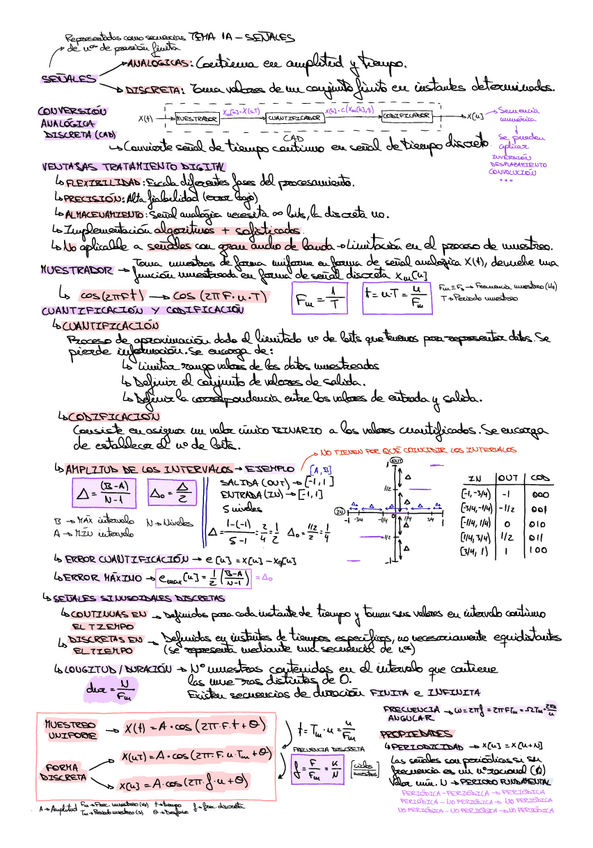 Representadas como secuencias TEMA 1A - SEÑALES
de nos de precisión finita
SEÑALES
ANALÓGICAS: Continua en amplitud y tiempo.
DISCRETA: Toma valores de un conjunto finito en instantes determinados.
CONVERSIÓN
ANALÓGICA
DISCRETA (CAD)
X(t) → MUESTREADOR → CUANTIFICADOR → CODIFICADOR → X[n] → Secuencia numérica
CAD
Se pueden aplicar
INVERSIÓN
DESPLAZAMIENTO
CONVOLUCIÓN
...
↳ Convierte señal de tiempo continuo en señal de tiempo discreto
VENTAJAS TRATAMIENTO DIGITAL
↳ FLEXIBILIDAD: Escala diferentes fases del procesamiento.
↳ PRECISIÓN: Alta fiabilidad (error bajo)
↳ ALMACENAMIENTO: Señal analógica necesita ∞ bits, la discreta no.
↳ Implementación algoritmos + sofisticados.
↳ No aplicable a señales con gran ancho de banda → limitación en el proceso de muestreo.
MUESTRADOR → Toma muestras de forma uniforme en forma de señal analógica X(t), devuelve una
función muestreada en forma de señal discreta Xm[n]
↳ cos(2πFt) → cos(2πF·n·T)
Fm = 1/T
t = n·T = n/Fm
Fm = Fs → Frecuencia muestreo (Hz)
T → Periodo muestreo
CUANTIFICACIÓN Y CODIFICACIÓN
↳ CUANTIFICACIÓN
Proceso de aproximación dado el limitado no de bits que tenemos para representar datos. Se
pierde información. Se encarga de:
↳ Limitar rango valores de los datos muestreados
↳ Definir el conjunto de valores de salida.
↳ Definir la correspondencia entre los valores de entrada y salida.
↳ CODIFICACIÓN
Consiste en asignar un valor único BINARIO a los valores cuantificados. Se encarga
de establecer el no de bits.
NO TIENEN POR QUÉ COINCIDIR LOS INTERVALOS
↳ AMPLITUD DE LOS INTERVALOS → EJEMPLO [A,B]
Δ = (B-A)/(N-1)
Δo = Δ/2
B → MÁX intervalo
A → MIN intervalo
N → Niveles
SALIDA (OUT) → [-1,1]
ENTRADA (IN) → [-1,1]
5 niveles
Δ = (1-(-1))/(5-1) = 2/4 = 1/2 Δo = (1/2)/2 = 1/4
OUT
IN
IN OUT COD
[-1,-3/4) -1 000
[-3/4,-1/4) -1/2 001
[-1/4,1/4) 0 010
[1/4,3/4) 1/2 011
[3/4,1) 1 100
↳ ERROR CUANTIFICACIÓN → e[n] = x[n] - xq[n]
↳ ERROR MÁXIMO → emax[n] = 1/2 (B-A)/(N-1) = Δo
↳ SEÑALES SINUSOIDALES DISCRETAS
↳ CONTINUAS EN EL TIEMPO → Definidas para cada instante de tiempo y toman sus valores en intervalo continuo
↳ DISCRETAS EN EL TIEMPO → Definidas en instantes de tiempos específicos, no necesariamente equidistantes
(se representa mediante una secuencia de nos)
↳ LONGITUD/DURACIÓN → No muestras contenidas en el intervalo que contiene
las muestras distintas de 0.
dur = N/Fm
Existen secuencias de duración FINITA e INFINITA
FRECUENCIA ANGULAR → ω = 2πf
MUESTREO UNIFORME → X(t) = A·cos(2π·F·t+θ)
FORMA DISCRETA
X(nT) = A·cos(2π·F·n·Tm+θ)
X[n] = A·cos(2π·f·n+θ)
t = Tm·n = n/Fm
FRECUENCIA DISCRETA
f = F/Fm = K/N
ciclos
muestras
PROPIEDADES
↳ PERIODICIDAD → X[n] = X[n+N]
Las señales son periódicas si su
frecuencia es un no racional (Q)
Valor mín. N → PERIODO FUNDAMENTAL
PERIÓDICA - PERIÓDICA → PERIÓDICA
PERIÓDICA - NO PERIÓDICA → NO PERIÓDICA
NO PERIÓDICA - NO PERIÓDICA → NO PERIÓDICA
A → Amplitud Fm → Frec. muestreo (Hz) t → tiempo f → frec. discreta
Tm → Periodo muestreo (s) θ → Desfase